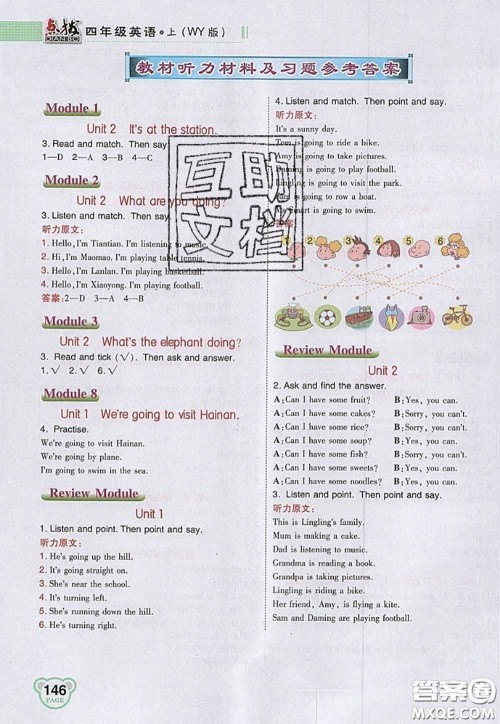 点拨
DIANBO
四年级英语·上(WY版)
教材听力材料及习题参考答案
Module 1
Unit 2 It's at the station.
3. Read and match. Then say.
1—D 2—A 3—B 4—C
Module 2
Unit 2 What are you doing?
3. Listen and match. Then say.
听力原文:
1. Hello, I'm Tiantian. I'm listening to music.
2. Hi, I'm Maomao. I'm playing table tennis.
3. Hello, I'm Lanlan. I'm playing basketball.
4. Hello, I'm Xiaoyong. I'm playing football.
答案:2—D 3—A 4—B
Module 3
Unit 2 What's the elephant doing?
3. Read and tick (√). Then ask and answer.
1. √ 2. √ 6. √
Module 8
Unit 1 We're going to visit Hainan.
4. Practise.
We're going to visit Hainan.
We're going by plane.
I'm going to swim in the sea.
Review Module
Unit 1
1. Listen and point. Then point and say.
听力原文:
1. He's going up the hill.
2. It's going straight on.
3. She's near the school.
4. It's turning left.
5. She's running down the hill.
6. He's turning right.
4. Listen and match. Then point and say.
听力原文:
It's a sunny day.
Tom is going to ride a bike.
Amy is going to take pictures.
Daming is going to play football.
Lingling is going to visit the park.
Sam is going to row a boat.
Smart is going to swim.
答案:
1 2 3 4 5 6
Review Module
Unit 2
2. Ask and find the answer.
A: Can I have some fruit? B: Yes, you can.
A: Can I have some cakes? B: Sorry, you can't.
A: Can I have some rice? B: Sorry, you can't.
A: Can I have some soup? B: Yes, you can.
A: Can I have some fish? B: Sorry, you can't.
A: Can I have some sweets? B: Yes, you can.
A: Can I have some noodles? B: Yes, you can.
3. Listen and point. Then point and say.
听力原文:
This is Lingling's family.
Mum is making a cake.
Dad is listening to music.
Grandma is reading a book.
Grandpa is watching TV.
Lingling is riding a bike.
Her friend, Amy, is flying a kite.
Sam and Daming are playing football.
146
PAGE
互助
文档
答案圈
MXQE.COM